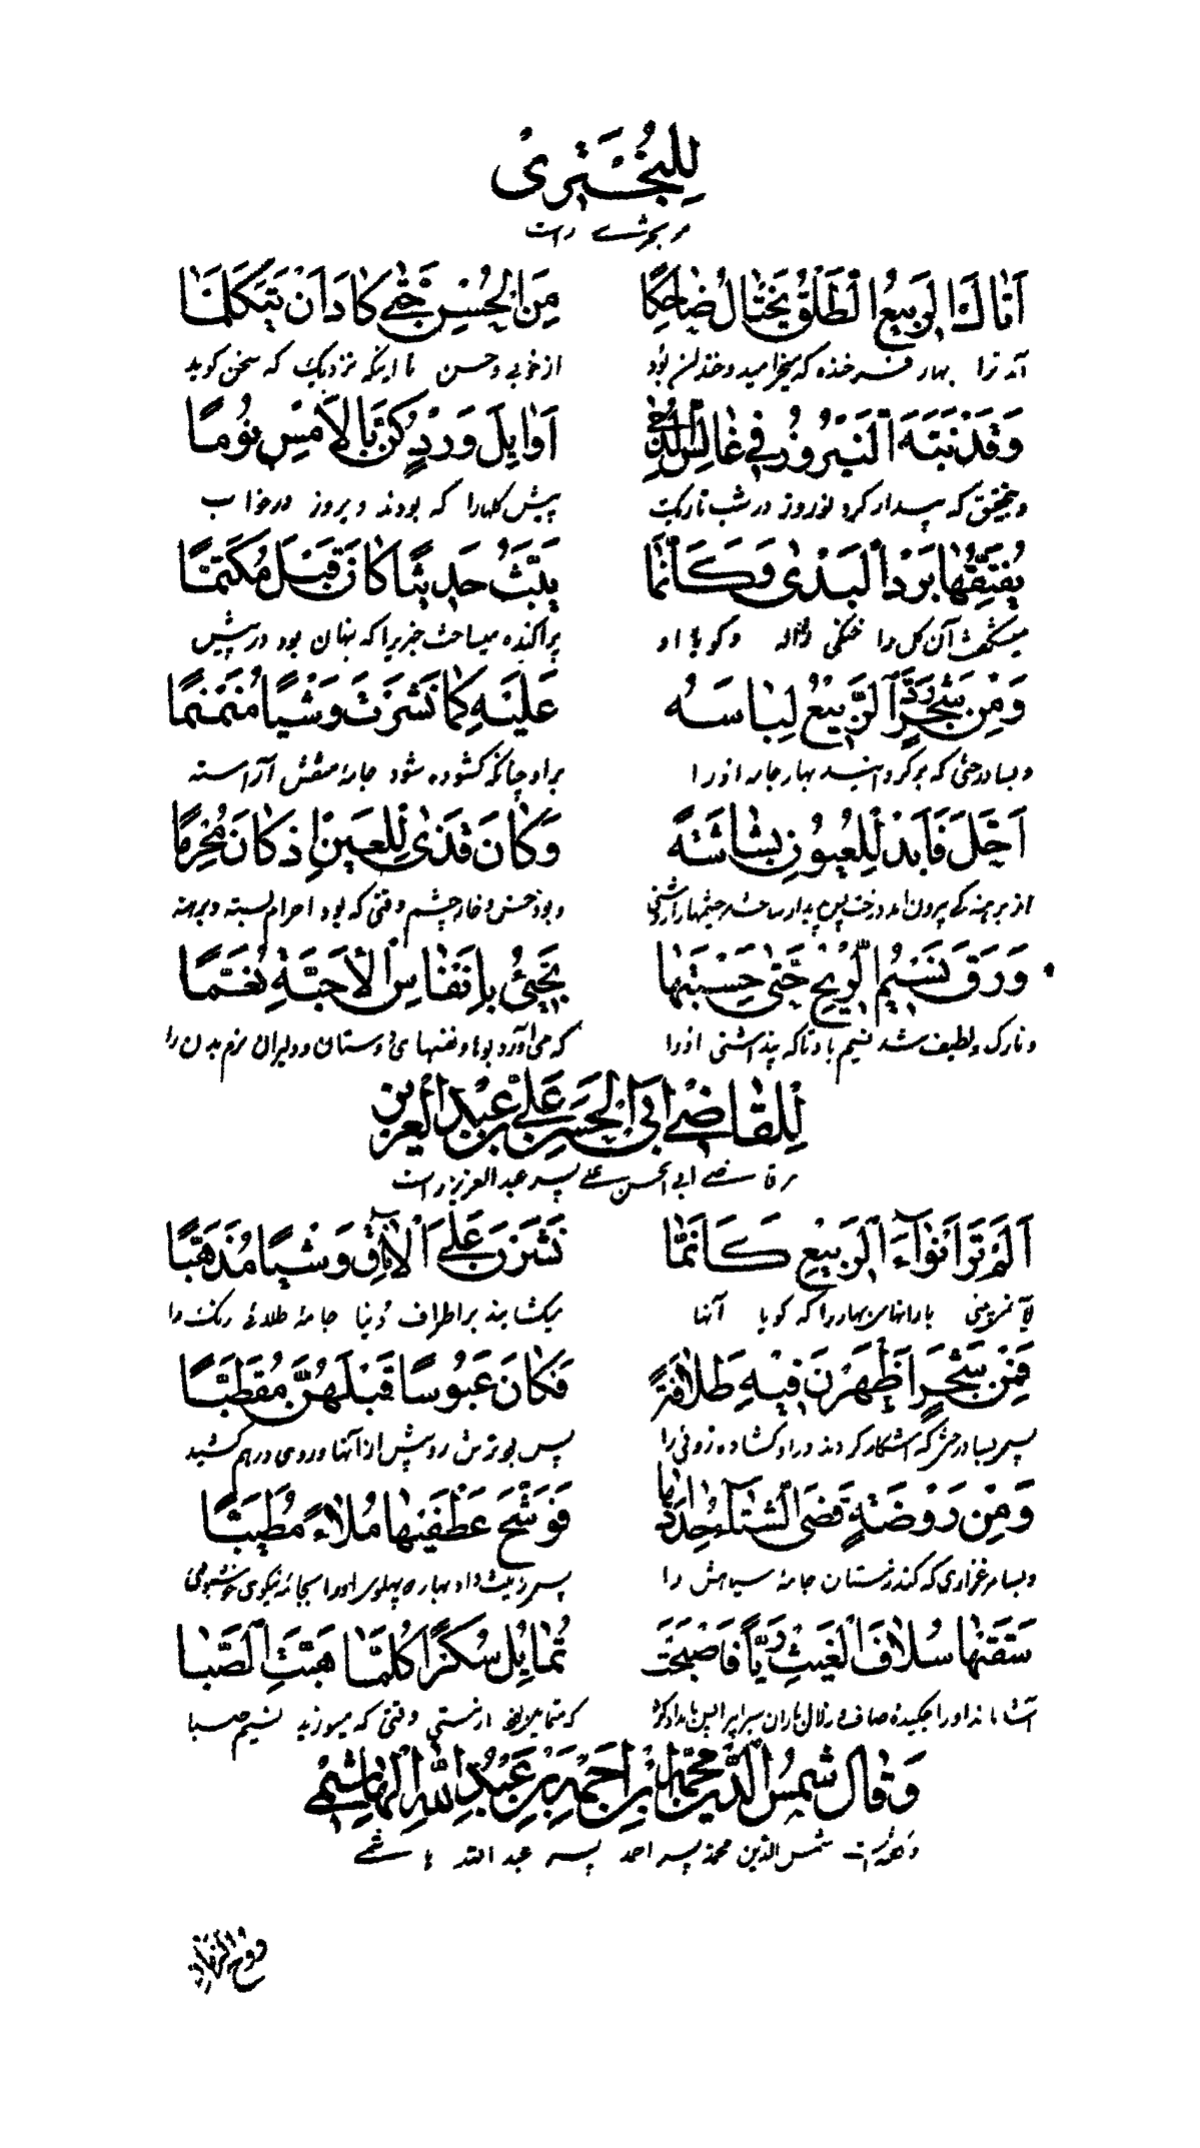 لِلبُحْتَرِیْ
مر بحتری راست
اَتَاكَ الرَّبِيْعُ الطَّلْقُ يَخْتَالُ ضَاحِكًا مِنَ الْحُسْنِ حَتّٰى كَادَ اَنْ يَتَكَلَّمَا
آمد ترا بهار خنده که میخرامید و خنده‌زن بود از خوبی و حسن تا اینکه نزدیک که سخن گوید
وَقَدْ نَبَّهَ النَّيْرُوْزُ فِي غَالِسِ الدُّجٰى اَوَايِلَ وَرْدٍ كُنَّ بِالْاَمْسِ نُوَّمًا
و بتحقیق که بیدار کرد نوروز در شب تاریک پیش گلها را که بودند دیروز در خواب
يُفَتِّقُهَا بَرْدُ النَّدٰى وَكَاَنَّمَا يَبُثُّ حَدِيثًا كَانَ قَبْلُ مُكَتَّمًا
میشکفت آن گل را خنکی ژاله و گویا او پراکنده میساخت خبریرا که پنهان بود در پیش
وَمِنْ شَجَرٍ رَدَّ الرَّبِيْعُ لِبَاسَهُ عَلَيْهِ كَمَا نَشَّرْتَ وَشْيًا مُنَمْنَمًا
و بسا درختی که برگردانید بهار جامه او را بر او چنانکه گشوده شود جامهٔ منقش آراسته
اَحَلَّ فَاَبْدٰى لِلْعُيُوْنِ بَشَاشَةً وَكَانَ قَذًى لِلْعَيْنِ اِذْ كَانَ مُحْرِمًا
از برهنه‌گی بیرون آمد درخت پس پدید ساخت چشمها را روشنی و بود خس و خار چشم وقتی که بود احرام بسته و برهنه
وَرَقَّ نَسِيْمُ الرِّيْحِ حَتّٰى حَسِبْتَهَا يَجِيْئُ بِاَنْفَاسِ الْاَحِبَّةِ نُعَّمًا
و نازک و لطیف شد نسیم باد تا که پنداشتی او را که می‌آورد بوها و نفسهای دوستان و دلبران نرم بدن را
لِلْقَاضِي اَبِي الْحَسَنِ عَلِيِّ بْنِ عَبْدِ الْعَزِيْزِ
مر قاضی ابی الحسن علی پسر عبدالعزیز راست
اَلَمْ تَرَ اَنْوَاءَ الرَّبِيْعِ كَاَنَّمَا نَشَرْنَ عَلَى الْاٰفَاقِ وَشْيًا مُذَهَّبًا
آیا نمی‌بینی بارانهای بهار را که گویا آنها میگشایند بر اطراف دنیا جامهٔ طلائی رنگ را
فَمِنْ شَجَرٍ اَظْهَرْنَ فِيْهِ طَلَاقَةً فَكَانَ عَبُوْسًا قَبْلَهُنَّ مُقَطَّبًا
پس بسا درختی که آشکار کردند در او گشاده‌روئی را پس بود ترش روی پیش از آنها و روی درهم کشید
وَمِنْ رَوْضَةٍ قَضَى الشِّتَاءُ حِدَادَهَا فَوَشَّحَ عِطْفَيْهَا مُلَاءً مُطَيَّبًا
و بسا مرغزاری که کند زمستان جامهٔ سیاهش را پس زینت داد بهار دو پهلوی او را بجامهٔ نیکوی خوشبوئی
سَقَتْهَا سُلَافَ الْغَيْثِ رِيًّا فَاَصْبَحَتْ تُمَايِلُ سُكْرًا كُلَّمَا هَبَّتِ الصَّبَا
که متمایل از مستی وقتی که میوزید نسیم صبا
وَقَالَ شَمْسُ الدِّيْنِ مُحَمَّدُ بْنُ اَحْمَدِ بْنِ عَبْدِ اللهِ الْهَاشِمِيِّ
شمس الدین محمد پسر احمد پسر عبد الله هاشمی